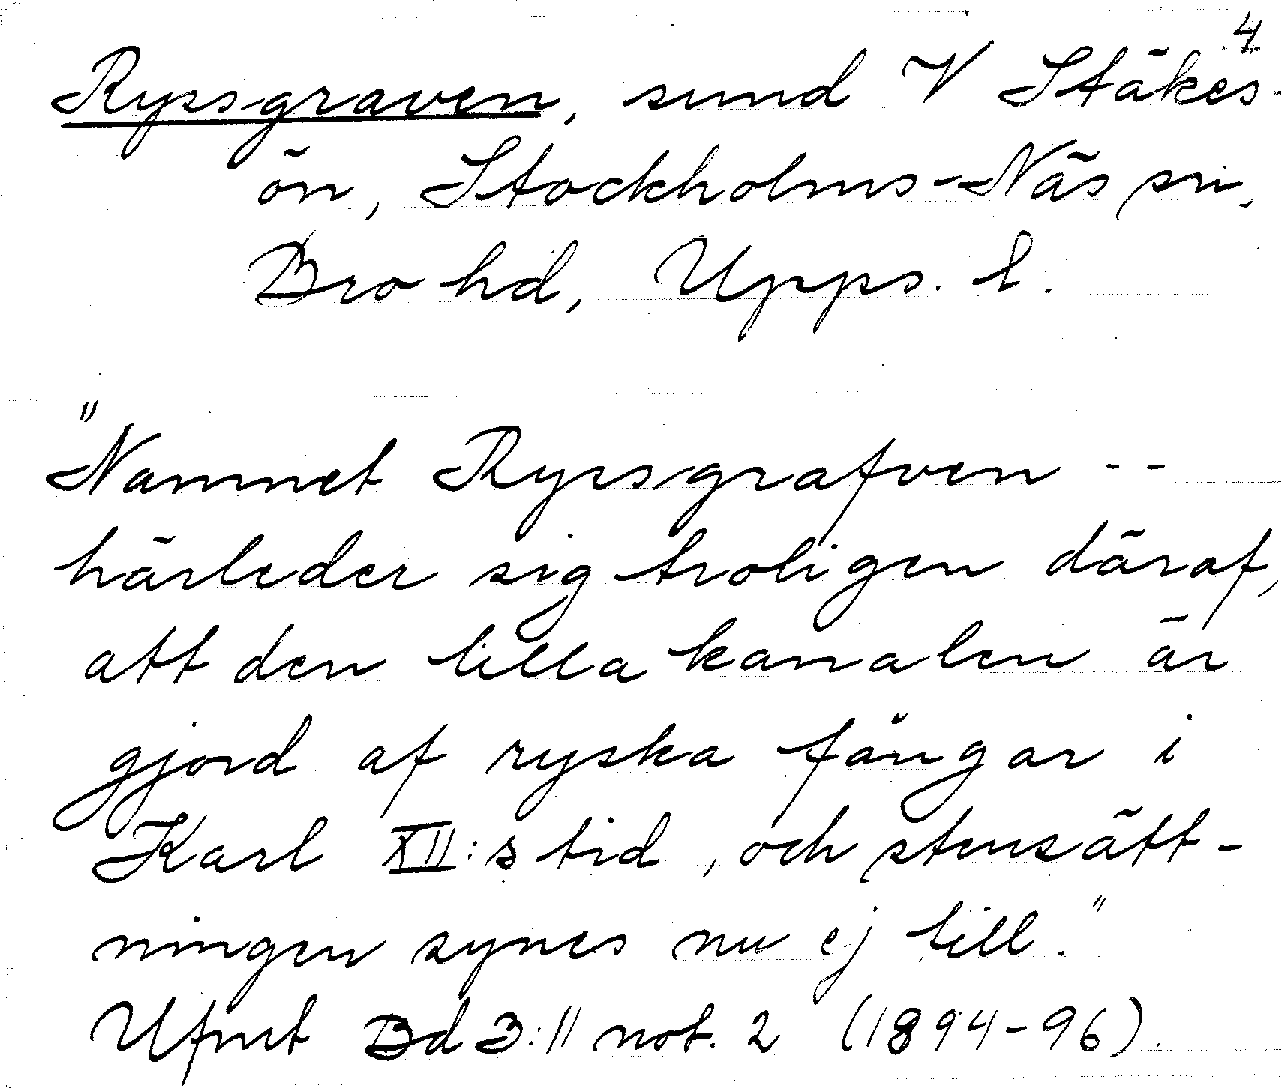 4
Ryssgraven, sund V Stäkes-
ön, Stockholms-Näs sn,
Bro hd, Upps. l.
"Namnet Ryssgrafven --
härleder sig troligen däraf,
att den lilla kanalen är
gjord af ryska fångar i
Karl XII:s tid, och stensätt-
ningen synes nu ej till."
Ufmt Bd 3:11 not. 2 (1894-96).